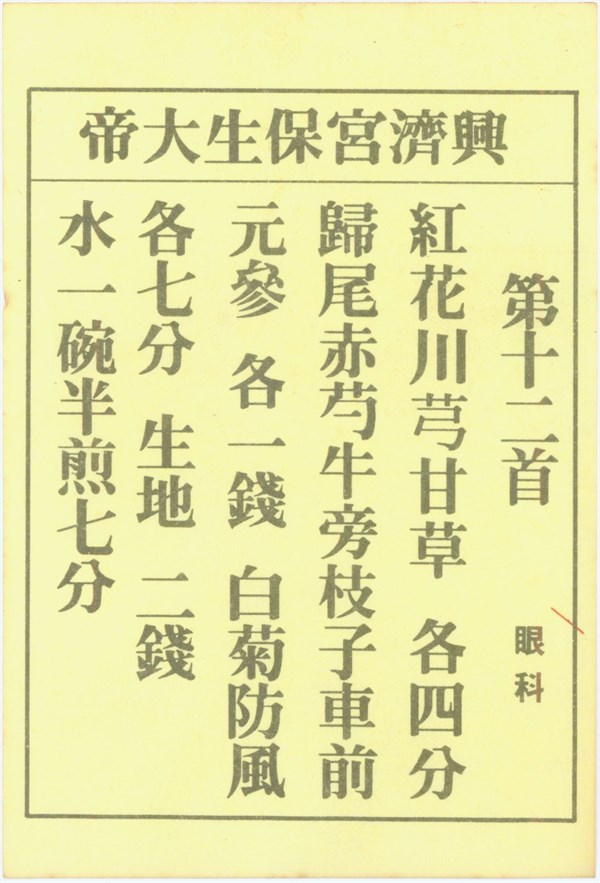 興濟宮保生大帝
第十二首 眼科
紅花川芎甘草 各四分
歸尾赤芍牛旁枝子車前
元參 各一錢 白菊防風
各七分 生地 二錢
水一碗半煎七分